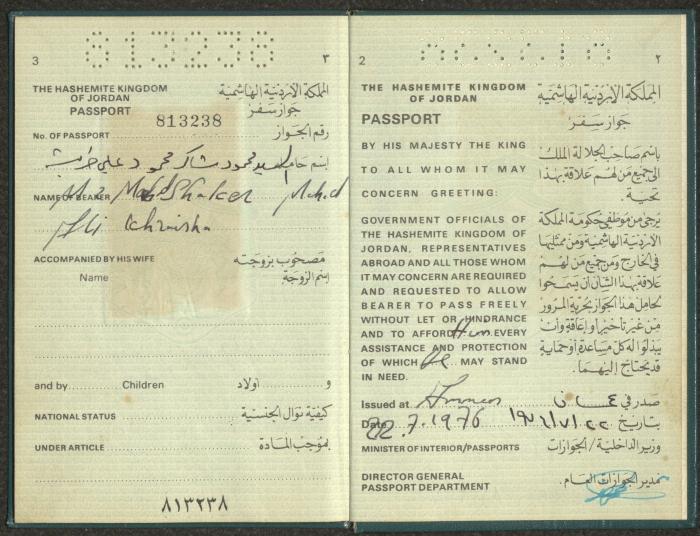 813238
3
٣
THE HASHEMITE KINGDOM OF JORDAN
المملكة الأردنية الهاشمية
PASSPORT
جواز سفر
813238
No. OF PASSPORT
رقم الجواز
اسم حامله السيد محمود شاكر محمود علي خريشه
NAME OF BEARER Mr Mahd Shaker Mahd
Ali Khraisha
ACCOMPANIED BY HIS WIFE
مصحوب بزوجته
Name
اسم الزوجة
and by Children
و أولاد
NATIONAL STATUS
كيفية نوال الجنسية
UNDER ARTICLE
بموجب المادة
٨١٣٢٣٨
2
٢
THE HASHEMITE KINGDOM OF JORDAN
المملكة الأردنية الهاشمية
PASSPORT
جواز سفر
BY HIS MAJESTY THE KING
TO ALL WHOM IT MAY
CONCERN GREETING:
باسم صاحب الجلالة الملك
الى جميع من لهم علاقة بهذا
تحية.
GOVERNMENT OFFICIALS OF
THE HASHEMITE KINGDOM OF
JORDAN, REPRESENTATIVES
ABROAD AND ALL THOSE WHOM
IT MAY CONCERN ARE REQUIRED
AND REQUESTED TO ALLOW
BEARER TO PASS FREELY
WITHOUT LET OR HINDRANCE
AND TO AFFORD Him EVERY
ASSISTANCE AND PROTECTION
OF WHICH He MAY STAND
IN NEED.
يرجى من موظفي حكومة المملكة
الأردنية الهاشمية ومن ممثليها
في الخارج ومن جميع من لهم
علاقة بهذا الشأن أن يسمحوا
لحامل هذا الجواز بحرية المرور
من غير تأخير أو إعاقة وأن
يبذلوا له كل مساعدة أو حماية
قد يحتاج إليهما.
Issued at Amman
صدر في عمان
Date 22.7.1976
بتاريخ ١٩٧٦/٧/٢٢
MINISTER OF INTERIOR/PASSPORTS
وزير الداخلية/الجوازات
DIRECTOR GENERAL
PASSPORT DEPARTMENT
مدير الجوازات العام.